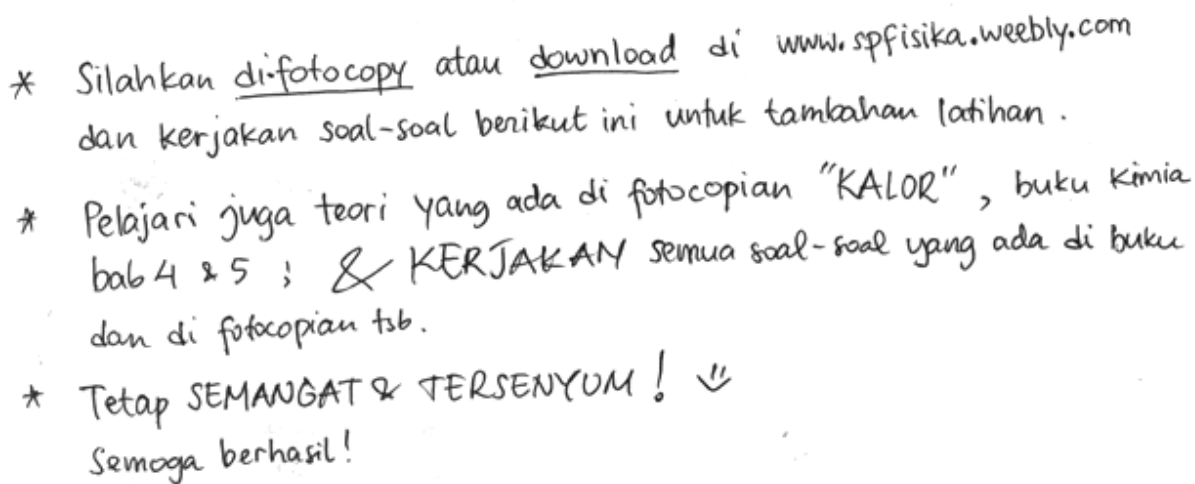 * Silahkan di-fotocopy atau download di www.spfisika.weebly.com
dan kerjakan soal-soal berikut ini untuk tambahan latihan.
* Pelajari juga teori yang ada di fotocopian "KALOR", buku Kimia
bab 4 & 5 ; & KERJAKAN semua soal-soal yang ada di buku
dan di fotocopian tsb.
* Tetap SEMANGAT & TERSENYUM!
Semoga berhasil!